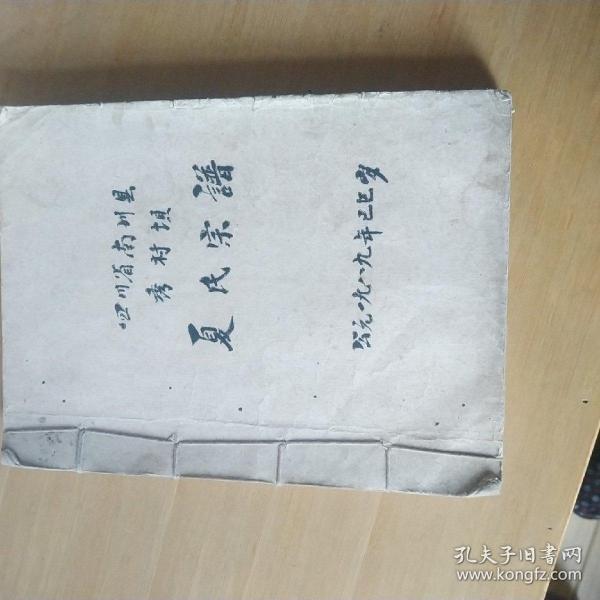 四川省南川县
秀村坝
夏氏宗谱
公元一九八九年己巳岁
孔夫子旧书网
www.kongfz.com